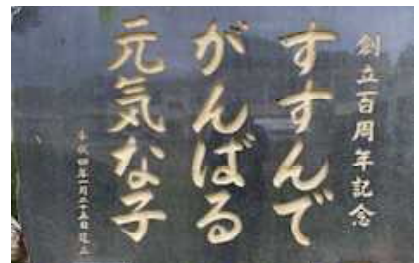 創立百周年記念
すすんで
がんばる
元気な子
平成四年一月二十五日建立